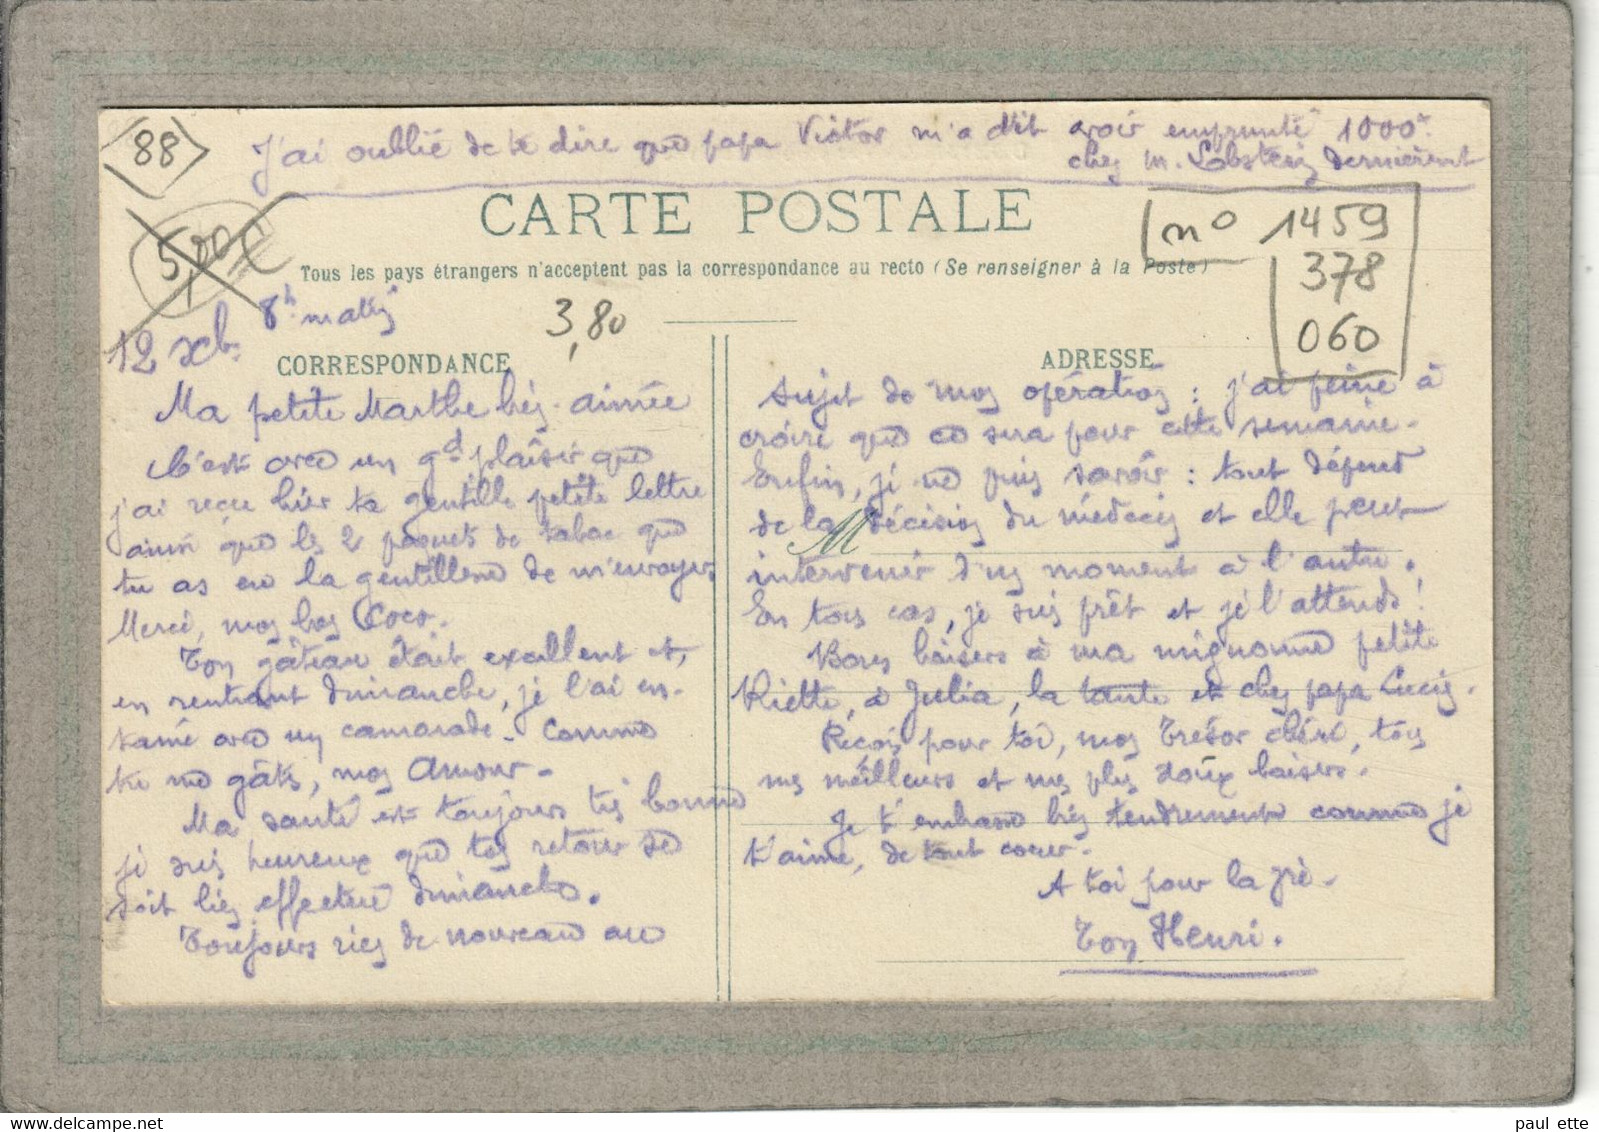 88
J'ai oublié de te dire que papa Victor m'a dit avoir emprunté 1000f
chez M. Lobstein dernièremt
CARTE POSTALE
Tous les pays étrangers n'acceptent pas la correspondance au recto (Se renseigner à la Poste)
5,00€
no 1459
378
060
12 xbre 8h matin
3,80
CORRESPONDANCE
Ma petite Marthe très-aimée
C'est avec un gd plaisir que
j'ai reçu hier ta gentille petite lettre
ainsi que les 2 paquets de tabac que
tu as eu la gentillesse de m'envoyer.
Merci, mon bon Coco.
Ton gâteau était excellent et,
en rentrant dimanche, je l'ai en-
tamé avec un camarade. Comme
tu me gâtes, mon Amour-
Ma santé est toujours très bonne
je suis heureux que ton retour se
soit bien effectué dimanche.
Toujours rien de nouveau au
ADRESSE
sujet de mon opération : j'ai peine à
croire que ce sera pour cette semaine.
Enfin, je ne puis savoir : tout dépend
de la décision du médecin et elle peut
M
intervenir d'un moment à l'autre.
En tous cas, je suis prêt et je l'attends !
Bons baisers à ma mignonne petite
Riette, à Julia, la tante et chez papa Lucien.
Reçois pour toi, mon Trésor chéri, tous
mes meilleurs et mes plus doux baisers.
Je t'embrasse très tendrement comme je
t'aime, de tout coeur.
A toi pour la vie.
Ton Henri.
paul ette
delcampe.net